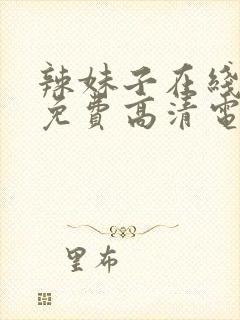 辣妹子在线
免費高清電
里布